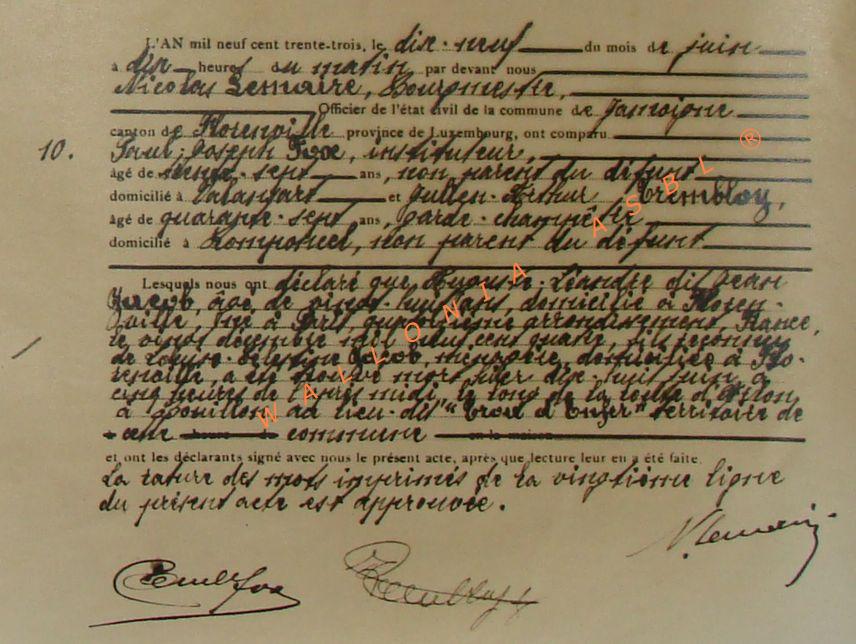 L'AN mil neuf cent trente-trois, le dix-neuf du mois de juin
à dix heures du matin par devant nous
Nicolas Lemaire, Bourgmestre,
Officier de l'état civil de la commune de Jamoigne
canton de Florenville province de Luxembourg, ont comparu
10. Paul-Joseph Fox, instituteur,
âgé de sept ans, non parent du défunt
domicilié à et Julien-Arthur Trembloy,
âgé de quarante-sept ans, garde-champêtre
domicilié à non parent du défunt
Lesquels nous ont déclaré que Auguste-Léandre dit Jean
Jacob, âgé de vingt-huit ans, domicilié à Floren-
ville, né à Paris, arrondissement, France,
le vingt décembre mil cent quatre, fils reconnu
de Louise-Célestine Jacob, ménagère, domiciliée à Flo-
renville, a été trouvé mort hier dix-huit juin à
cinq heures de l'après midi, le long de la route d'Arlon
à Bouillon au lieu-dit "Trou d'Enfer" territoire de
cette commune
et ont les déclarants signé avec nous le présent acte, après que lecture leur en a été faite.
La rature des mots imprimés de la vingtième ligne
du présent acte est approuvée.
N. Lemaire
WALLONIA ASBL ®